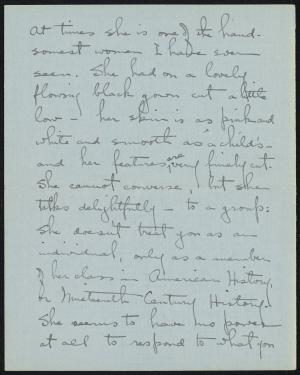 At times she is one of the hand-
somest women I have ever
seen. She had on a lovely
flowing black gown cut a little
low - her skin is as pink and
white and smooth as a child's -
and her features are very finely cut.
She cannot converse, but she
talks delightfully - to a group:
She doesn't treat you as an
individual, only as a member
of her class in American History,
or Nineteenth Century History.
She seems to have no power
at all to respond to what you